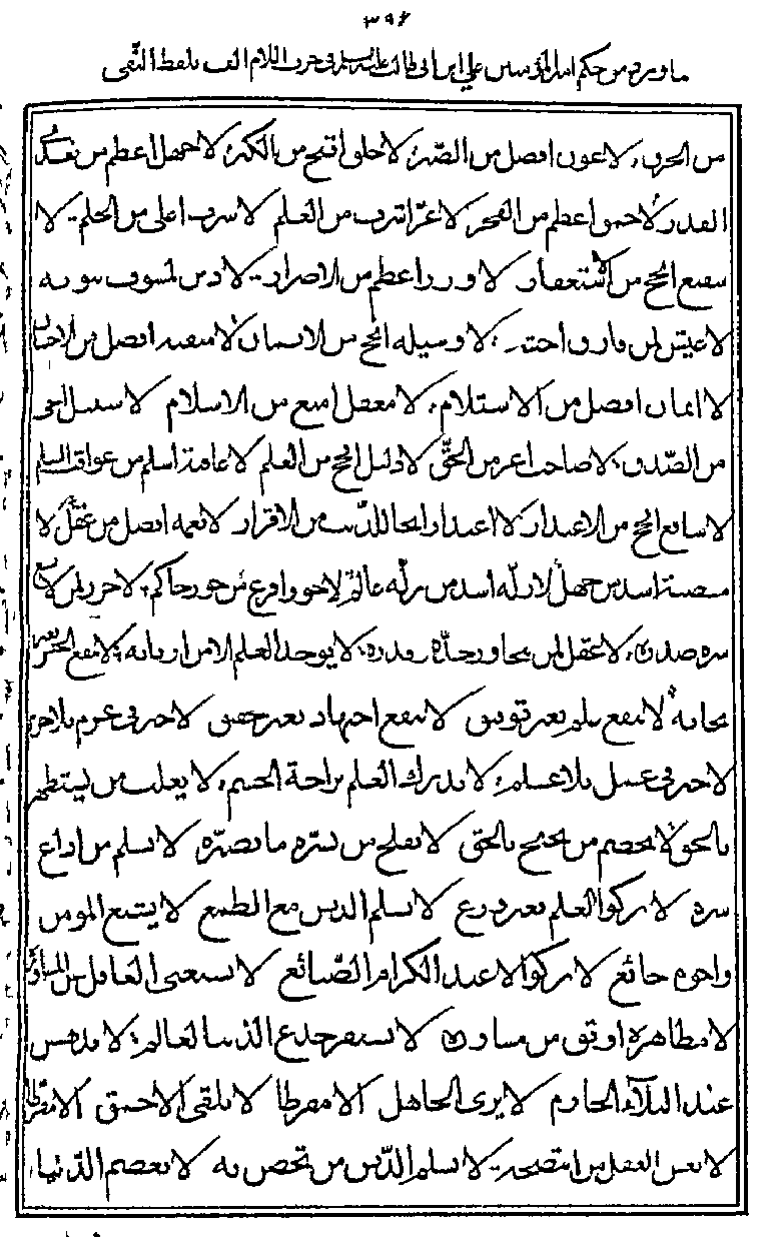 ٣٩٤
مما ورد من حكم أمير المؤمنين علي ابن أبي طالب عليه السلام في حرف اللام ألف بلفظ النفي
من الحرف لا عون أفضل من الصبر لا خلق أقبح من الكبر لا جهل أعظم من تعدي
القدر لا حمق أعظم من الفخر لا عز أشرف من العلم لا شرف أعلى من الحلم لا
شفيع أنجح من الاستغفار لا وزر أعظم من الإصرار لا دين لمسوف بتوبته
لا عيش لمن فارق أحبته لا وسيلة أنجح من الإيمان لا منقبة أفضل من الإحسان
لا إيمان أفضل من الاستسلام لا معقل أمنع من الإسلام لا سبيل أنجى
من الصدق لا صاحب أعز من الحق لا دليل أنجح من العلم لا عاقبة أسلم من عواقب السلم
لا شافع أنجح من الاعتذار لا اعتذار أمحى للذنب من الإقرار لا نعمة أفضل من عقل لا
مصيبة أشد من جهل لا زلة أشد من زلة عالم لا جور أفظع من جور حاكم لا حرز لمن لا يسع
سره صدره لا عقل لمن يتجاوز حده وقدره لا يؤخذ العلم إلا من أربابه لا ينفع الحسن بغير
نجابة لا ينفع علم بغير توفيق لا ينفع اجتهاد بغير تحقيق لا خير في عزم بلا حزم
لا خير في عمل بلا علم لا يدرك العلم براحة الجسم لا يغلب من يستظهر
بالحق لا يخصم من يحتج بالحق لا يفلح من يسره ما يضره لا يسلم من أذاع
سره لا يزكو العلم بغير ورع لا يسلم الدين مع الطمع لا يشبع المؤمن
وأخوه جائع لا يزكو إلا عند الكرام الصنائع لا يستغني العاقل عن المشاورة
لا مظاهرة أوثق من مشاورة لا يستفز خدع الدنيا العالم لا يدهش
عند البلاء الحازم لا يرى الجاهل إلا مفرطا لا يلقى الأحمق إلا مفرطا
لا يغش العقل من انتصحه لا يسلم الدين من تحصن به لا يعصم الدنيا